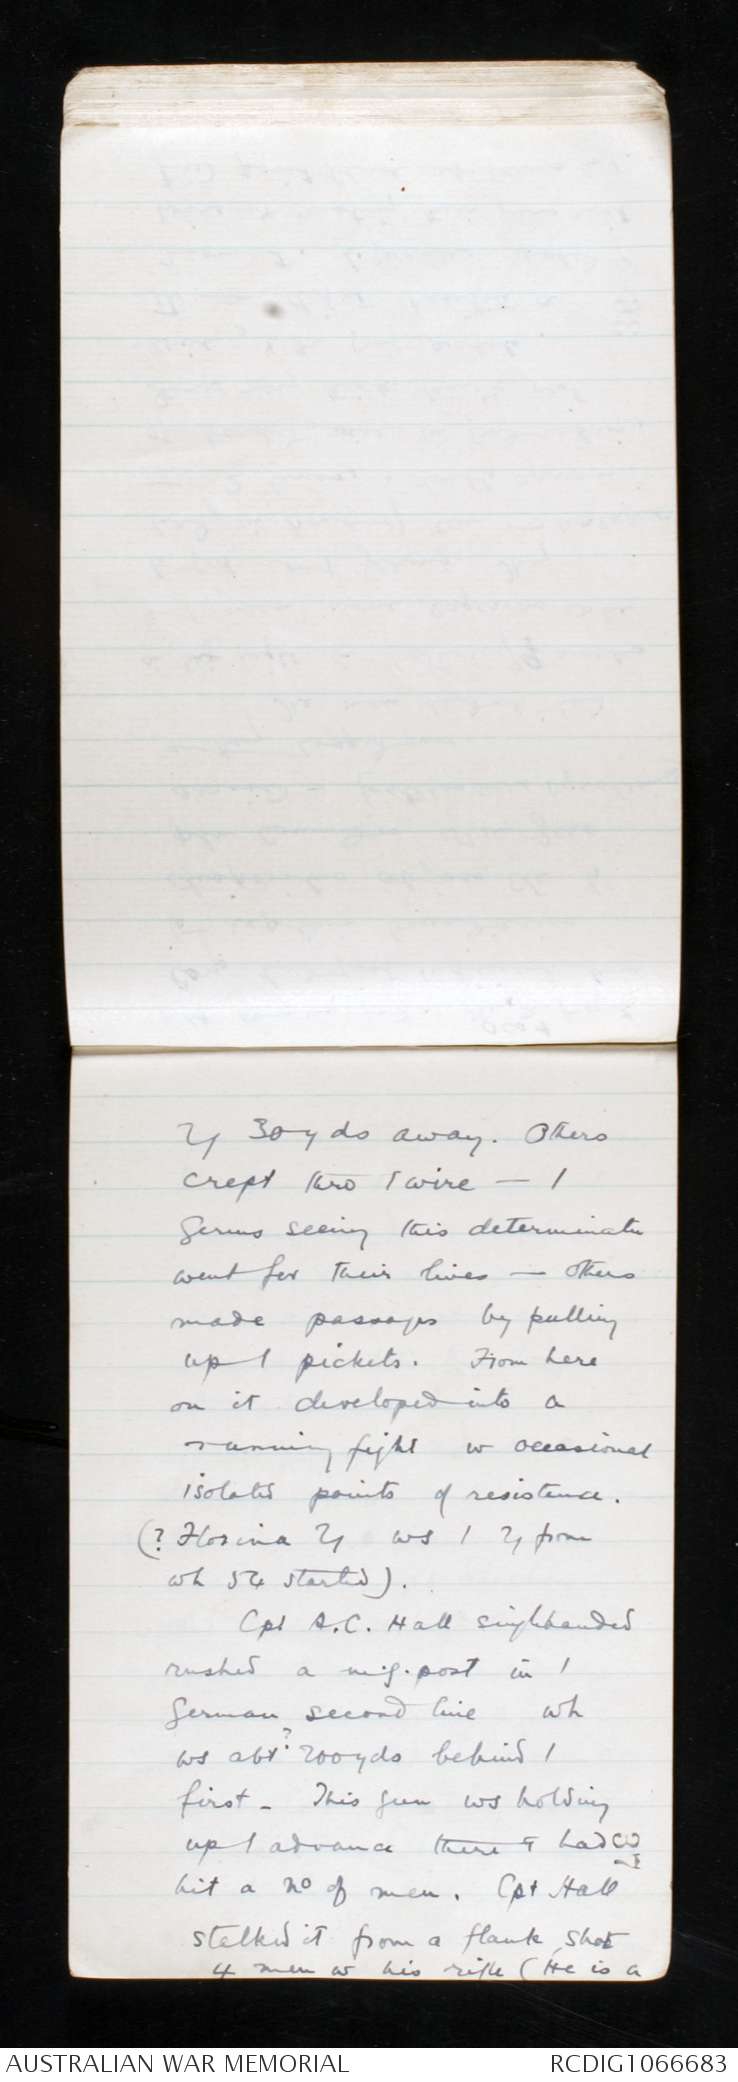 30 yds away. Others
crept thro / wire — /
Germs seeing this determinatn
went for their lives — others
made passages by pulling
up / pickets. From here
on it developed into a
running fight w occasional
isolated points of resistance.
(? Florina ws / from
wh 54 started).
Cpl A.C. Hall singlehanded
rushed a m.g. post in /
German second line wh
ws abt ? 200 yds behind /
first - This gun ws holding
up / advance there & had
hit a no of men. Cpl Hall
stalked it from a flank, shot
4 men w his rifle (He is a
AUSTRALIAN WAR MEMORIAL
RCDIG1066683